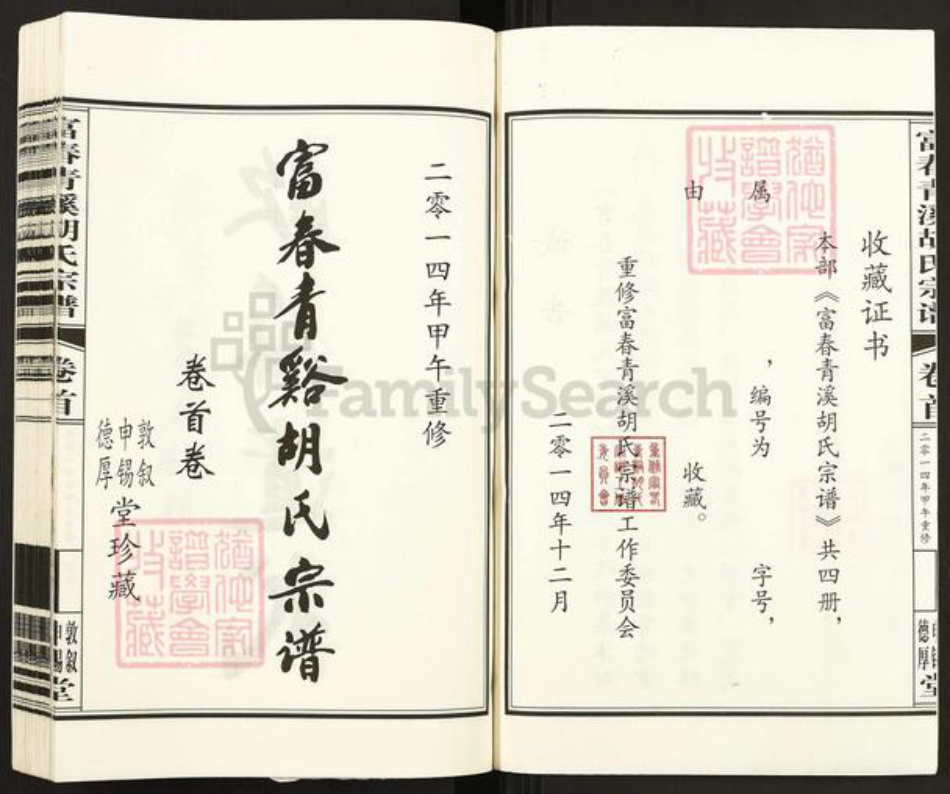 收藏证书
本部《富春青溪胡氏宗谱》共四册，
属　　　，编号为　　　字号，
由　　　收藏。
重修富春青溪胡氏宗谱工作委员会
二零一四年十二月
富春青溪胡氏宗谱
卷首
二零一四年甲午重修
二零一四年甲午重修
富春青谿胡氏宗谱
卷首卷
敦叙
申锡
德厚
堂珍藏
富春青溪胡氏宗谱
卷首
敦叙
申锡
堂
FamilySearch
猶他家
譜學會
收藏